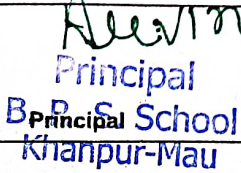 Principal
B. P. S. School
Principal
Khanpur-Mau